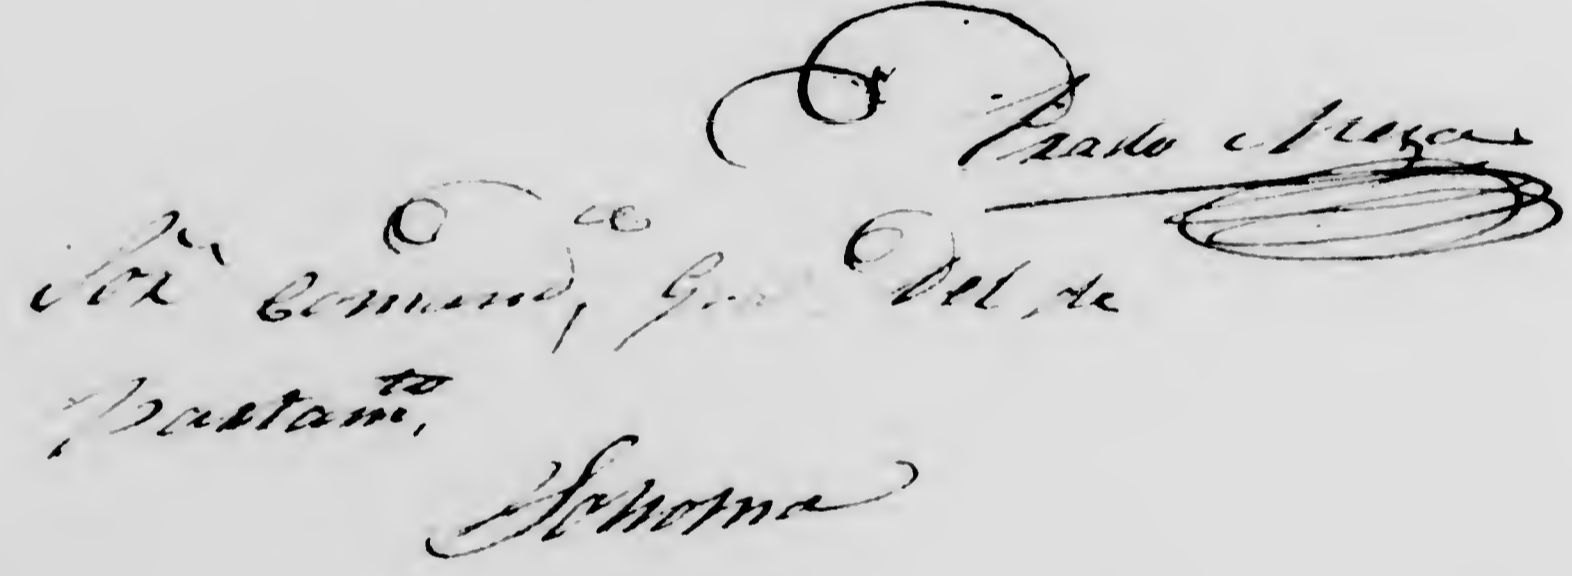 Prado Mesa
Sor. Comand, Gral Del de
partamto,
Sonoma